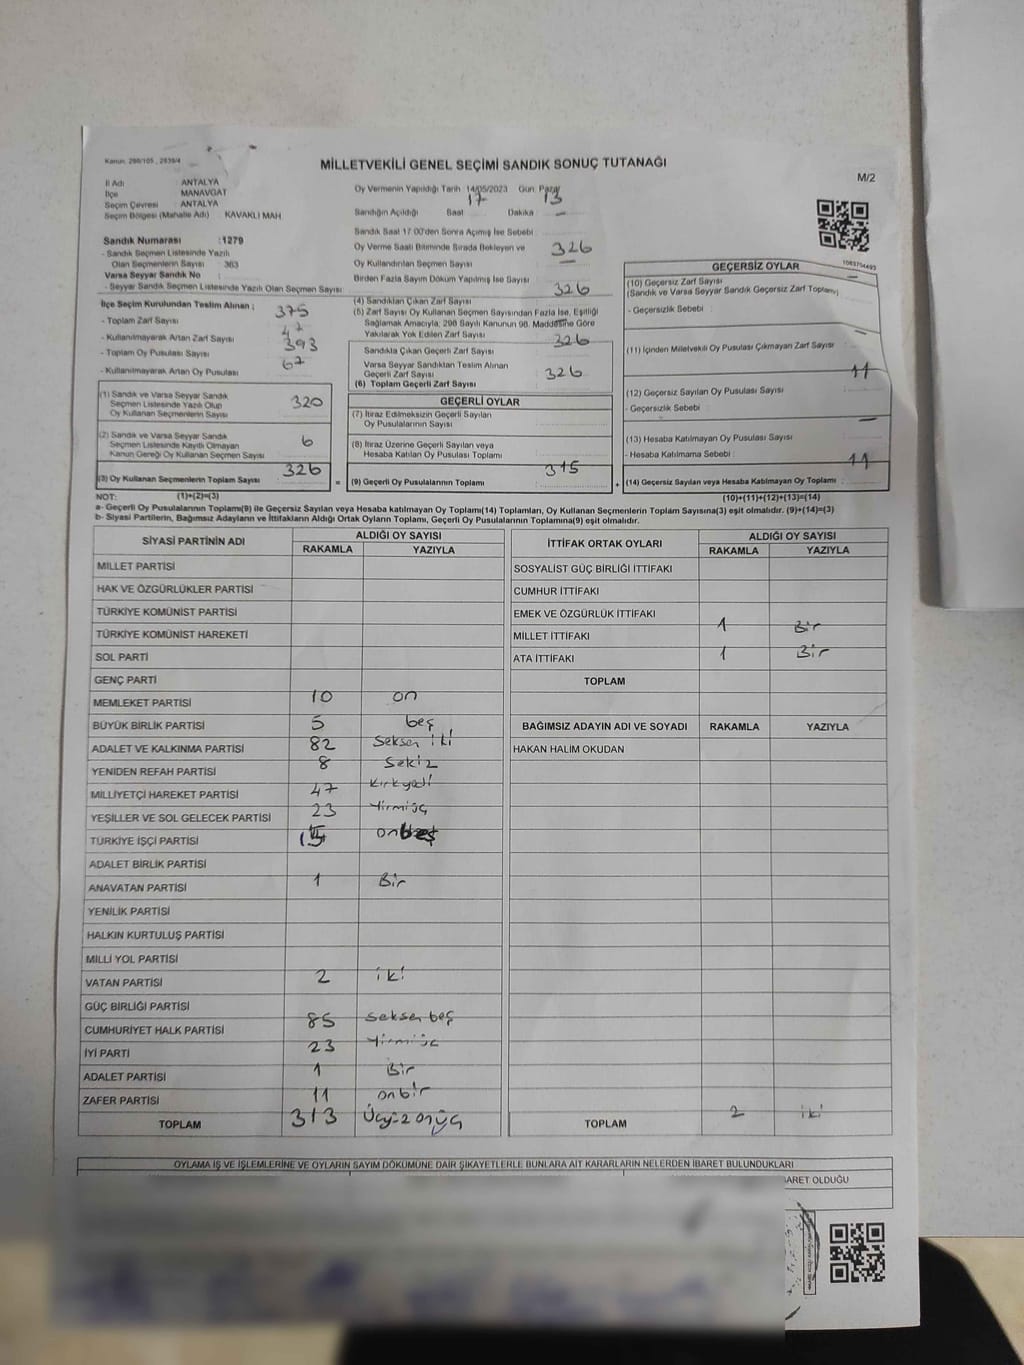 Kanun: 298/105 , 2839/4
MİLLETVEKİLİ GENEL SEÇİMİ SANDIK SONUÇ TUTANAĞI
M/2
İl Adı : ANTALYA
İlçe : MANAVGAT
Seçim Çevresi : ANTALYA
Seçim Bölgesi (Mahalle Adı) : KAVAKLI MAH
Oy Vermenin Yapıldığı Tarih :14/05/2023 Gün: Pazar
Sandığın Açıldığı Saat 17 Dakika 13
Sandık Saat 17:00'den Sonra Açılmış İse Sebebi : –
Oy Verme Saati Bitiminde Sırada Bekleyen ve
Oy Kullandırılan Seçmen Sayısı 326
Birden Fazla Sayım Döküm Yapılmış İse Sayısı –
Sandık Numarası :1279
- Sandık Seçmen Listesinde Yazılı
Olan Seçmenlerin Sayısı : 363
Varsa Seyyar Sandık No :
- Seyyar Sandık Seçmen Listesinde Yazılı Olan Seçmen Sayısı :
İlçe Seçim Kurulundan Teslim Alınan ;
- Toplam Zarf Sayısı 375
- Kullanılmayarak Artan Zarf Sayısı :
- Toplam Oy Pusulası Sayısı 393
- Kullanılmayarak Artan Oy Pusulası 67
(1) Sandık ve Varsa Seyyar Sandık
Seçmen Listesinde Yazılı Olup
Oy Kullanan Seçmenlerin Sayısı 320
(2) Sandık ve Varsa Seyyar Sandık
Seçmen Listesinde Kayıtlı Olmayan
Kanun Gereği Oy Kullanan Seçmen Sayısı 6
(3) Oy Kullanan Seçmenlerin Toplam Sayısı 326
(4) Sandıktan Çıkan Zarf Sayısı 326
(5) Zarf Sayısı Oy Kullanan Seçmen Sayısından Fazla İse, Eşitliği
Sağlamak Amacıyla; 298 Sayılı Kanunun 98. Maddesine Göre
Yakılarak Yok Edilen Zarf Sayısı
Sandıkta Çıkan Geçerli Zarf Sayısı 326
Varsa Seyyar Sandıktan Teslim Alınan
Geçerli Zarf Sayısı
(6) Toplam Geçerli Zarf Sayısı 326
GEÇERLİ OYLAR
(7) İtiraz Edilmeksizin Geçerli Sayılan
Oy Pusulalarının Sayısı
(8) İtiraz Üzerine Geçerli Sayılan veya
Hesaba Katılan Oy Pusulası Toplamı
= (9) Geçerli Oy Pusulalarının Toplamı 315 +
GEÇERSİZ OYLAR
(10) Geçersiz Zarf Sayısı –
(Sandık ve Varsa Seyyar Sandık Geçersiz Zarf Toplamı)
- Geçersizlik Sebebi :
(11) İçinden Milletvekili Oy Pusulası Çıkmayan Zarf Sayısı –
(12) Geçersiz Sayılan Oy Pusulası Sayısı 11
- Geçersizlik Sebebi :
(13) Hesaba Katılmayan Oy Pusulası Sayısı –
- Hesaba Katılmama Sebebi :
(14) Geçersiz Sayılan veya Hesaba Katılmayan Oy Toplamı 11
NOT: (1)+(2)=(3) (10)+(11)+(12)+(13)=(14)
a- Geçerli Oy Pusulalarının Toplamı(9) ile Geçersiz Sayılan veya Hesaba Katılmayan Oy Toplamı(14) Toplamları, Oy Kullanan Seçmenlerin Toplam Sayısına(3) eşit olmalıdır. (9)+(14)=(3)
b- Siyasi Partilerin, Bağımsız Adayların ve İttifakların Aldığı Ortak Oyların Toplamı, Geçerli Oy Pusulalarının Toplamına(9) eşit olmalıdır.
SİYASİ PARTİNİN ADI ALDIĞI OY SAYISI
RAKAMLA YAZIYLA
MİLLET PARTİSİ
HAK VE ÖZGÜRLÜKLER PARTİSİ
TÜRKİYE KOMÜNİST PARTİSİ
TÜRKİYE KOMÜNİST HAREKETİ
SOL PARTİ
GENÇ PARTİ
MEMLEKET PARTİSİ 10 on
BÜYÜK BİRLİK PARTİSİ 5 beş
ADALET VE KALKINMA PARTİSİ 82 Seksen iki
YENİDEN REFAH PARTİSİ 8 Sekiz
MİLLİYETÇİ HAREKET PARTİSİ 47 Kırkyedi
YEŞİLLER VE SOL GELECEK PARTİSİ 23 Yirmiüç
TÜRKİYE İŞÇİ PARTİSİ 15 onbeş
ADALET BİRLİK PARTİSİ
ANAVATAN PARTİSİ 1 Bir
YENİLİK PARTİSİ
HALKIN KURTULUŞ PARTİSİ
MİLLİ YOL PARTİSİ
VATAN PARTİSİ 2 iki
GÜÇ BİRLİĞİ PARTİSİ
CUMHURİYET HALK PARTİSİ 85 Seksen beş
İYİ PARTİ 23 Yirmiüç
ADALET PARTİSİ 1 Bir
ZAFER PARTİSİ 11 onbir
TOPLAM 313 Üçyüz onüç
İTTİFAK ORTAK OYLARI ALDIĞI OY SAYISI
RAKAMLA YAZIYLA
SOSYALİST GÜÇ BİRLİĞİ İTTİFAKI
CUMHUR İTTİFAKI
EMEK VE ÖZGÜRLÜK İTTİFAKI
MİLLET İTTİFAKI 1 Bir
ATA İTTİFAKI 1 Bir
TOPLAM
BAĞIMSIZ ADAYIN ADI VE SOYADI RAKAMLA YAZIYLA
HAKAN HALIM OKUDAN
TOPLAM 2 iki
OYLAMA İŞ VE İŞLEMLERİNE VE OYLARIN SAYIM DÖKÜMÜNE DAİR ŞİKAYETLERLE BUNLARA AİT KARARLARIN NELERDEN İBARET BULUNDUKLARI
BARET OLDUĞU